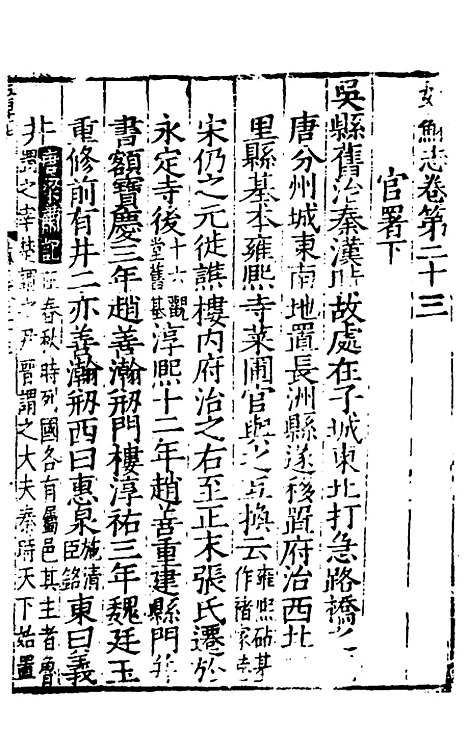 姑蘇志卷第二十三
官署下
吳縣舊治秦漢時故處在子城東北打急路橋
唐分州城東南地置長洲縣遂移置府治西北
里縣基本雍熙寺菜圃官與之互換云雍熙砧基作褚家
宋仍之元徙譙樓内府治之右至正末張氏遷於
永定寺後堂舊基淳熙十二年趙善重建縣門
書額寶慶三年趙善瀚剏門樓淳祐三年魏廷玉
重修前有井二亦善瀚剏西曰惠泉施清臣銘東曰義
井 唐梁肅記 春秋時列國各有屬邑其主者魯
謂之宰楚謂之尹晉謂之大夫秦時天下始置